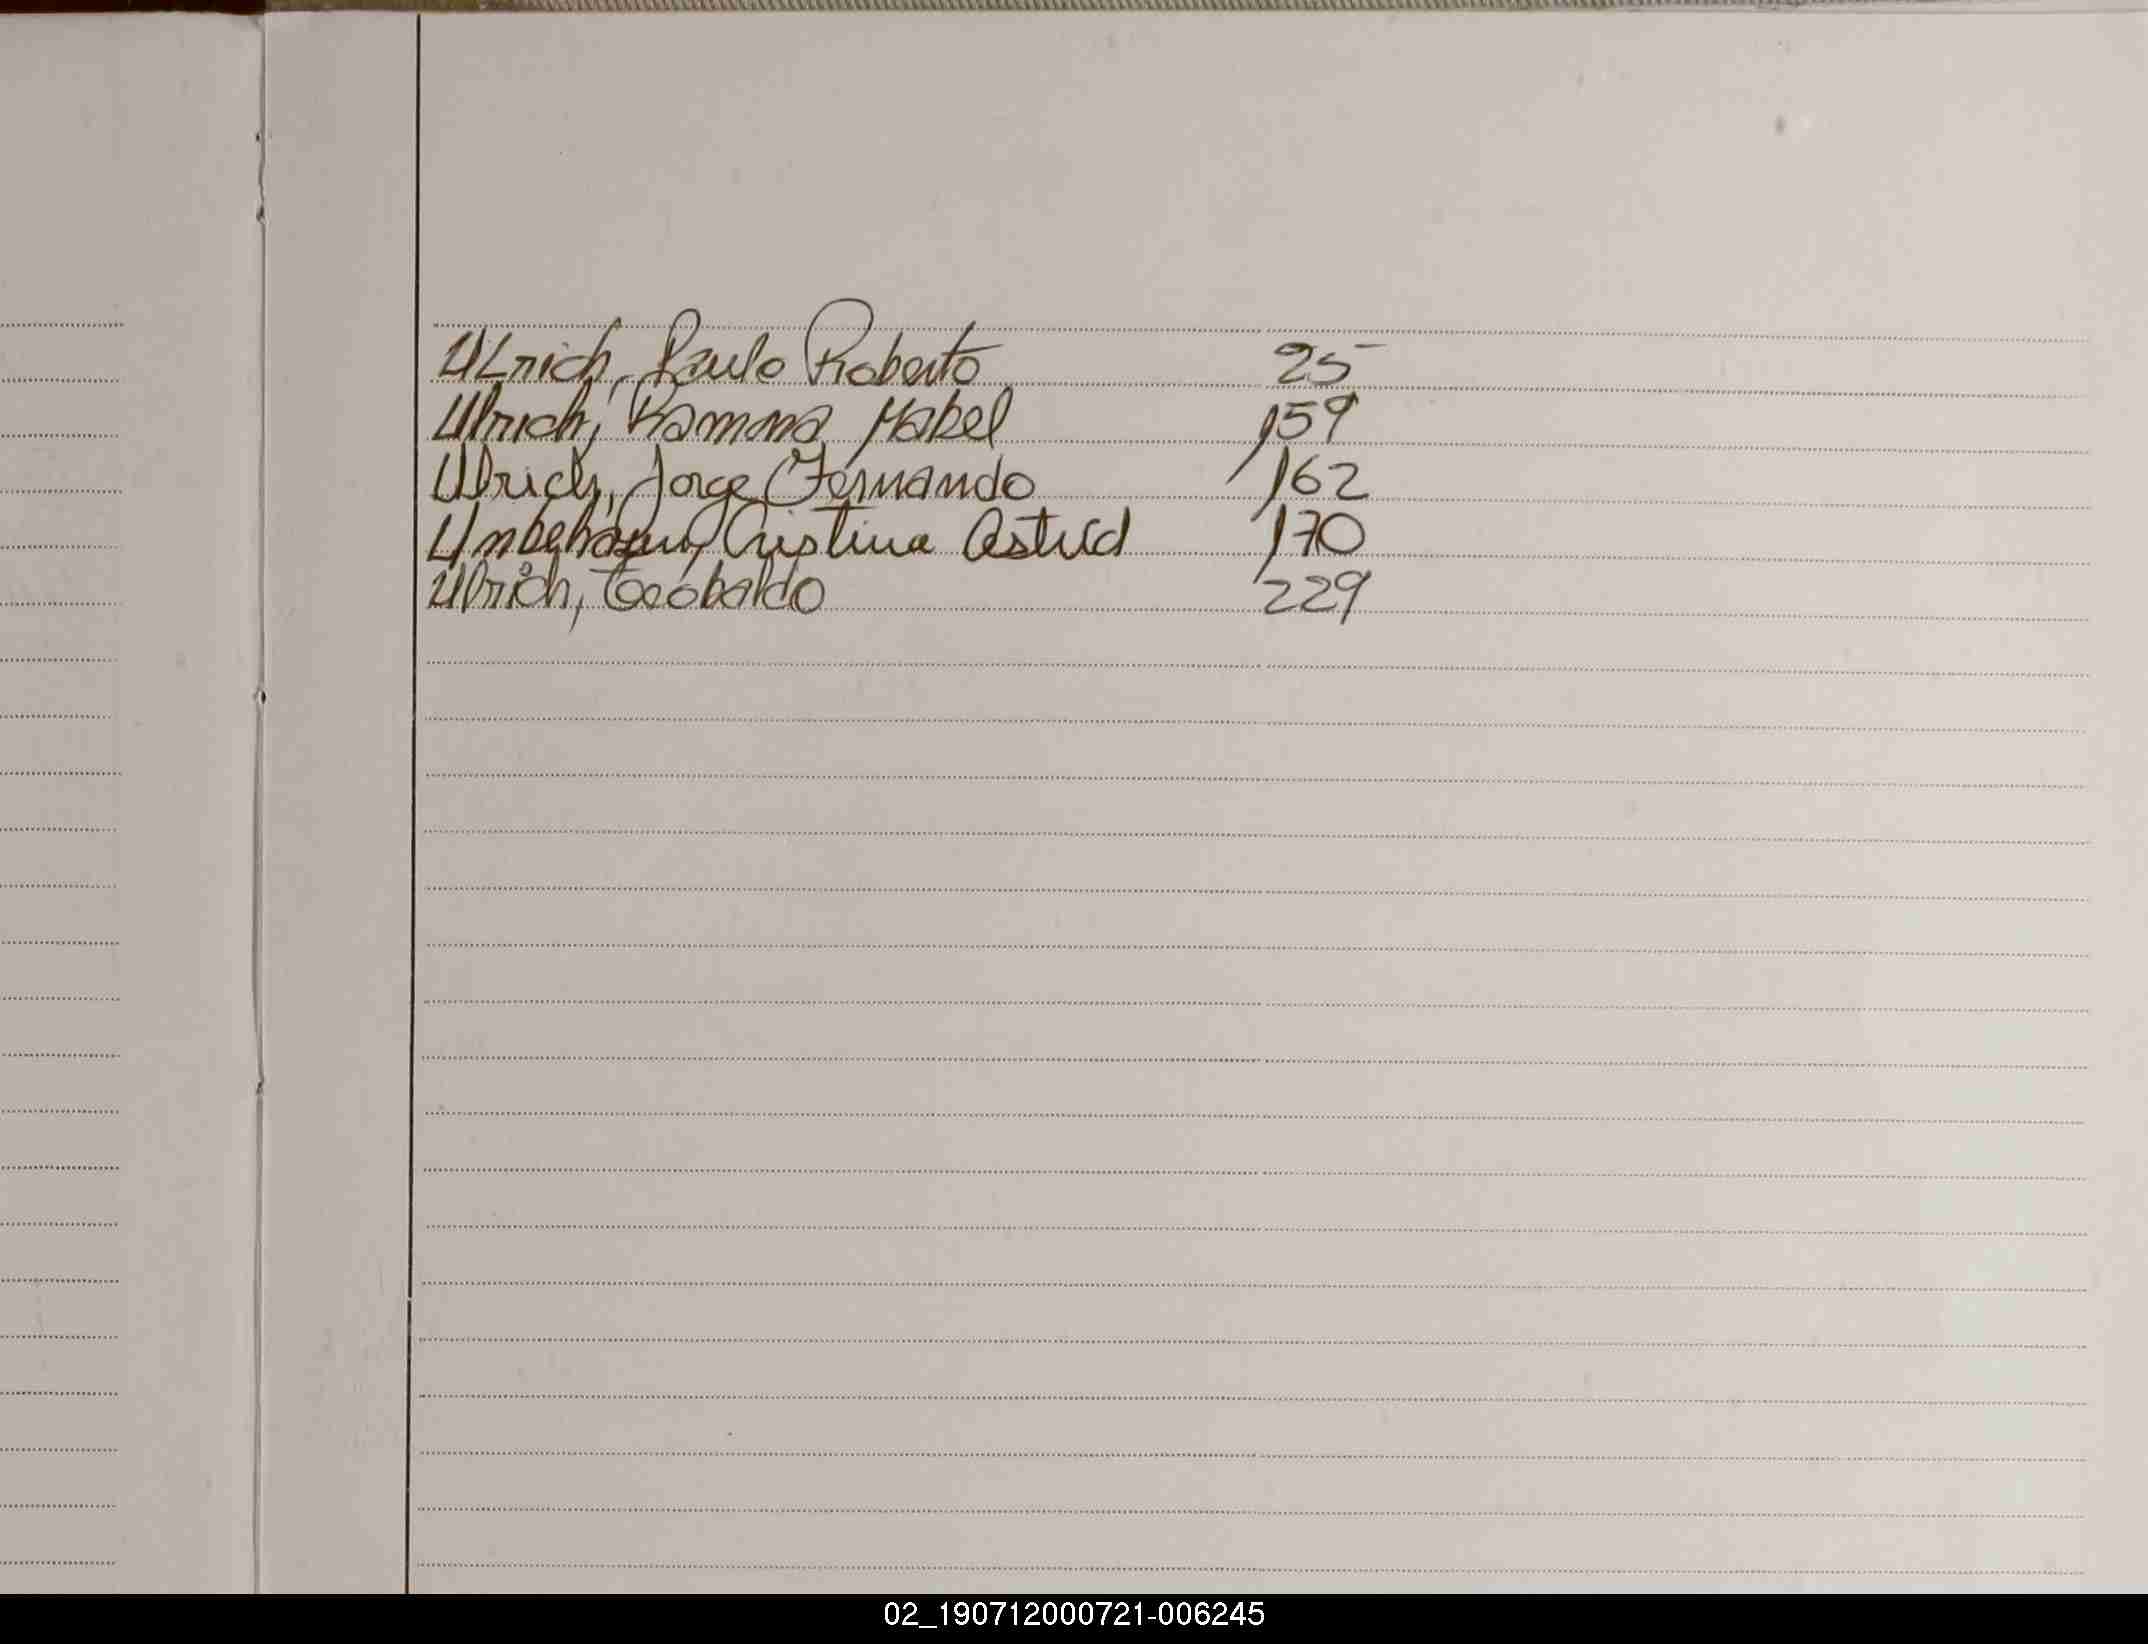 Ulrich, Paulo Roberto 25
Ulrich, Ramona Mabel 159
Ulrich, Jorge Fernando 162
Cristina Astrid 170
Ulrich, Teobaldo 229
02_190712000721-006245